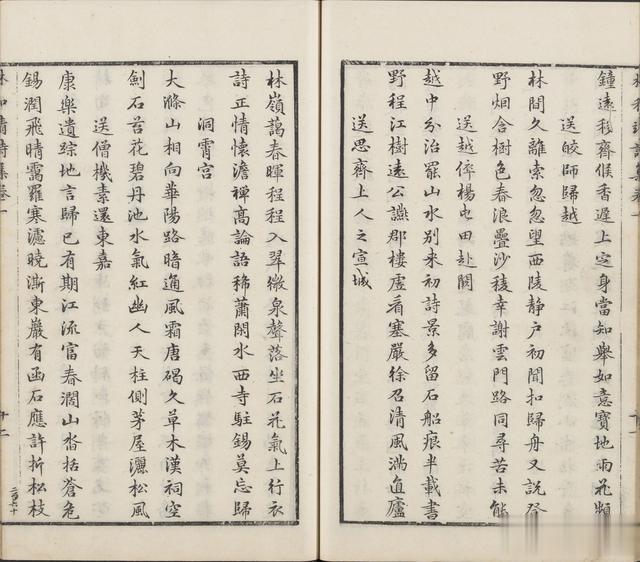 鐘遠移齋候香遲上定身當知舉如意寶地雨花頻
送皎師歸越
林間久離索忽忽望西陵静户初聞扣歸舟又説登
野烟含樹色春浪疊沙稜幸謝雲門路同尋苦未能
送越倅楊屯田赴闕
越中分治罷山水别来初詩景多留石船痕半載書
野程江樹遠公讌郡樓虚看塞嚴徐召清風滿直廬
送思齊上人之宣城
林嶺藹春暉程程入翠微泉聲落坐石花氣上行衣
詩正情懷澹禪高論語稀蕭閑水西寺駐錫莫忘歸
洞霄宫
大滌山相向華陽路暗通風霜唐碣久草木漢祠空
劍石苔花碧丹池水氣紅幽人天柱側茅屋灑松風
送僧機素還東嘉
康樂遺踪地言歸已有期江流富春濶山沓括蒼危
錫潤飛晴靄羅寒濾曉澌東巖有函石應許折松枝
林和靖詩集卷一
十二